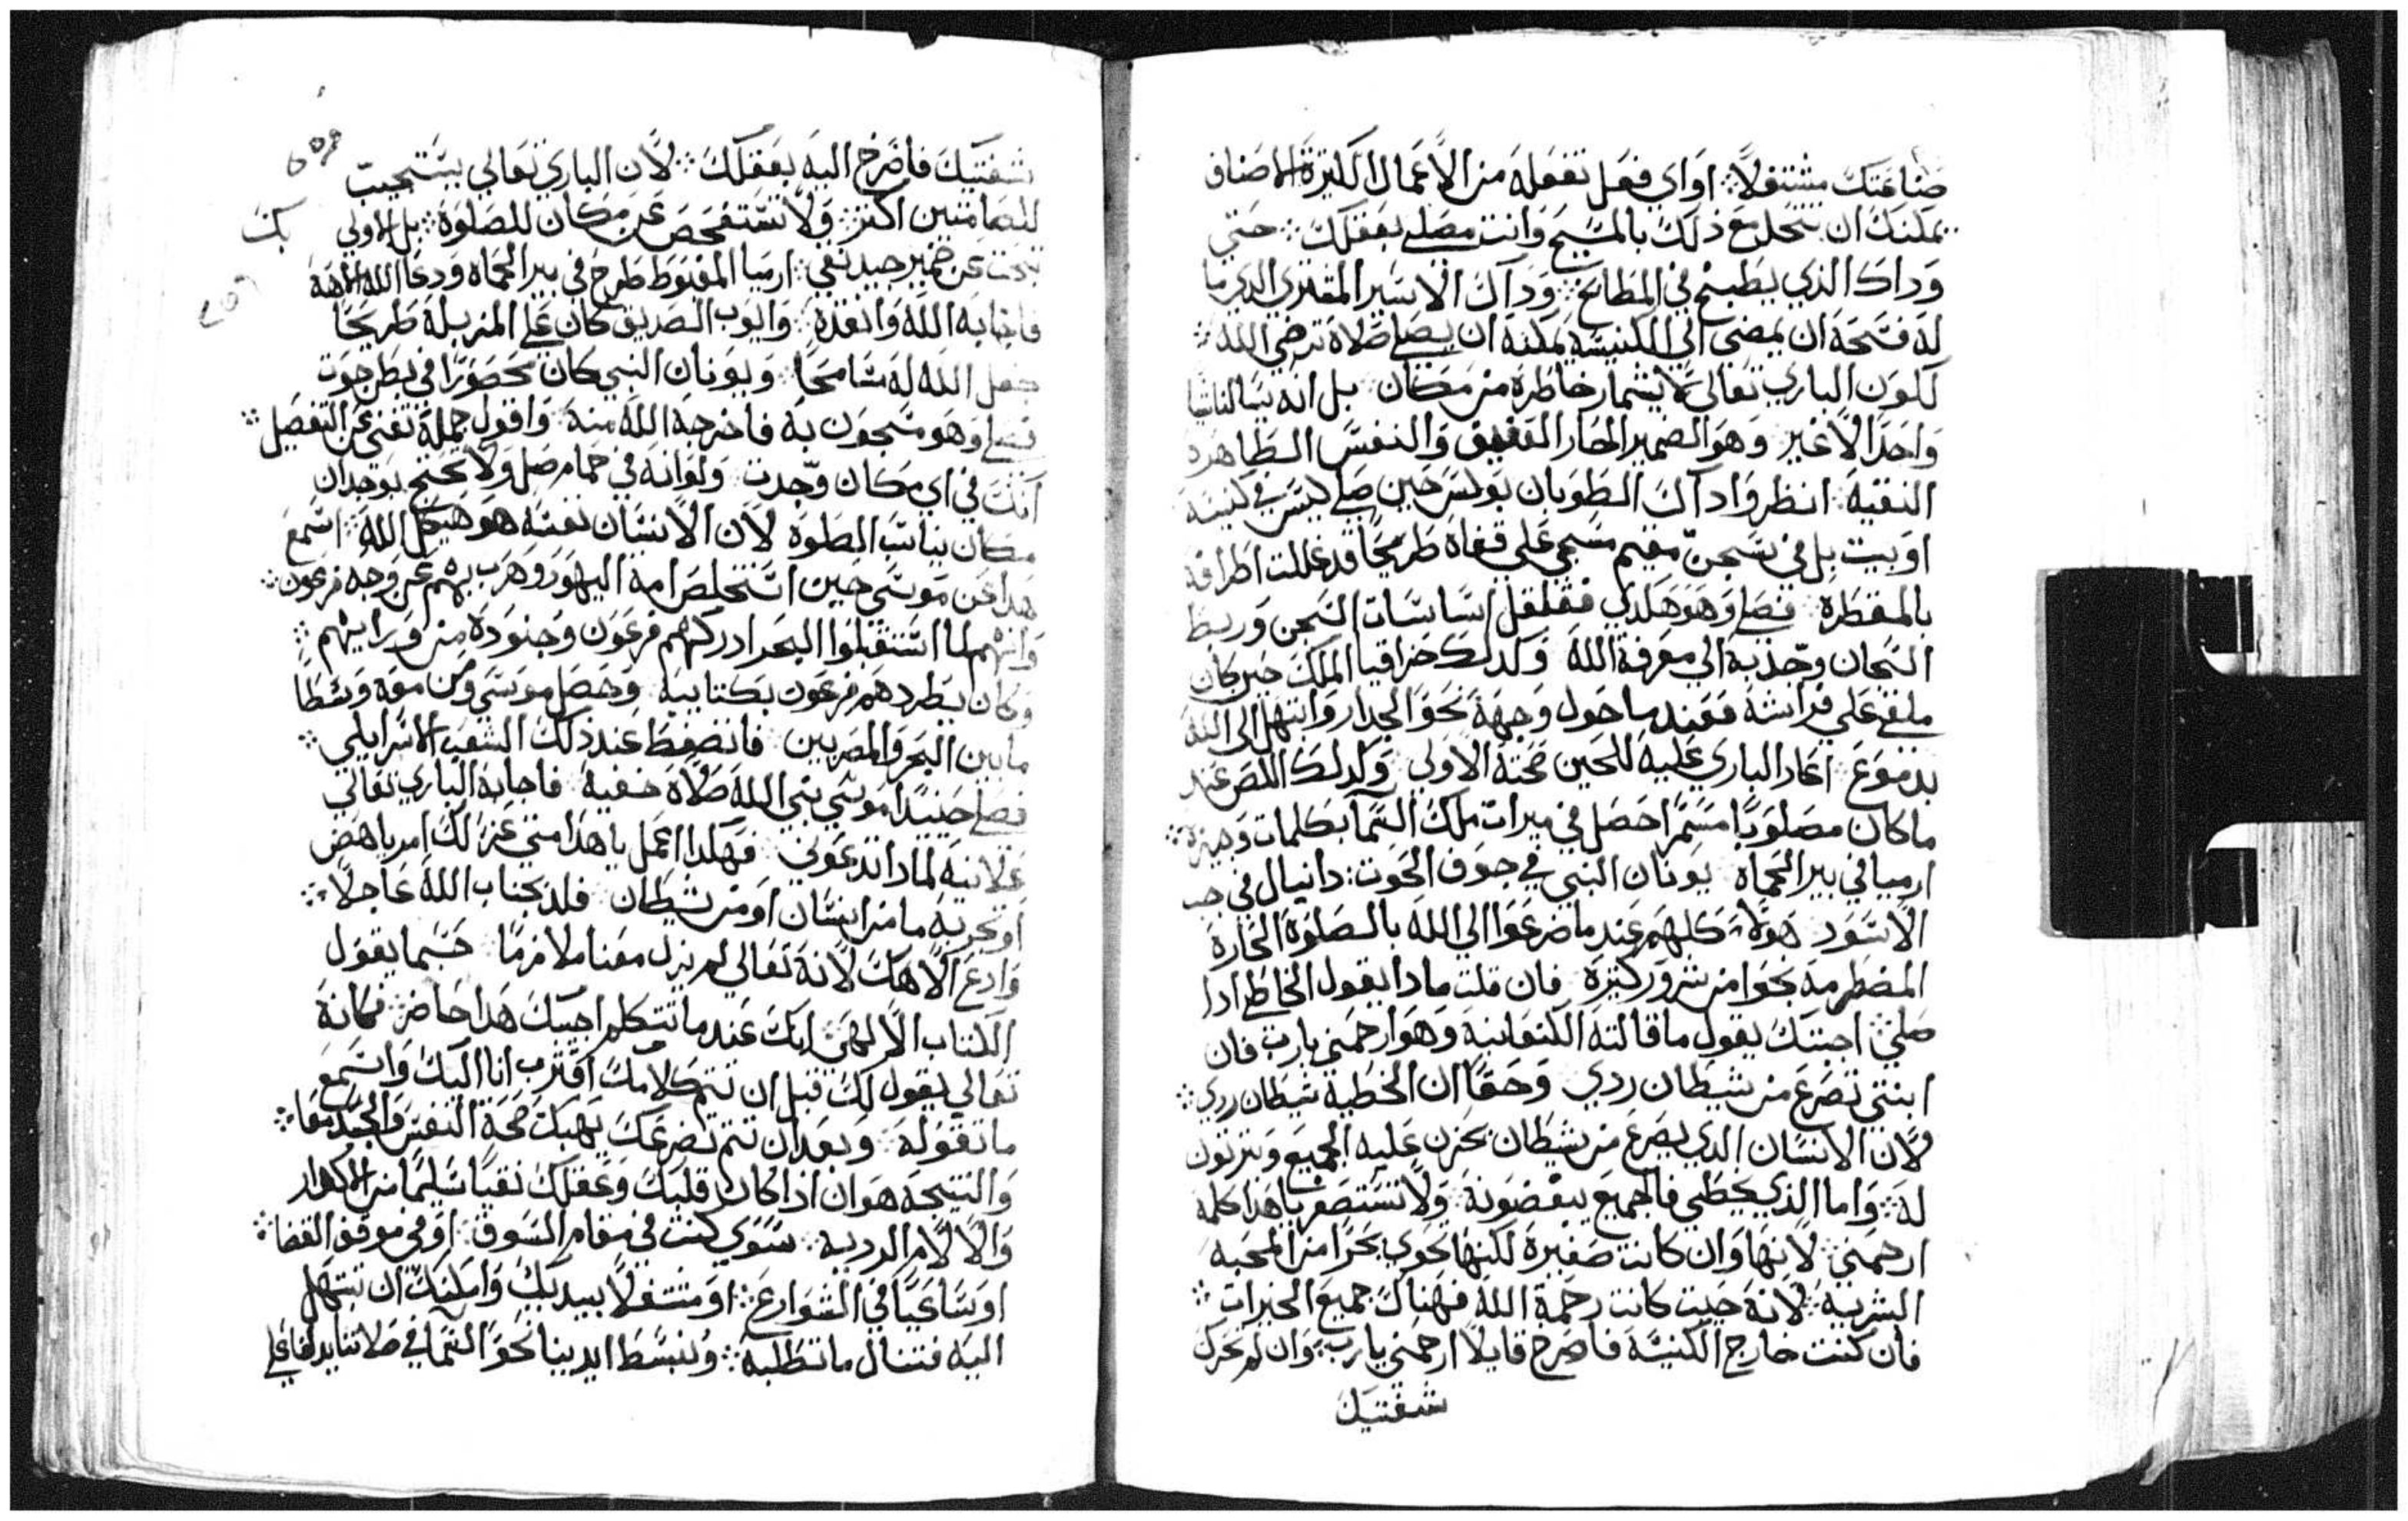 صناعتك مشتغلاً ۞ او اي فعل تفعله من الاعمال الكثيرة الاصناف
يمكنك ان تتحلى مع ذلك بالمسيح وانت مصلي بعقلك ۞ حتي
وداك الذي يطبخ في المطابخ ۞ وداك الاسير المفتري الدي ما
له فسحة ان يمضي الي الكنيسة يمكنه ان يصلي صلاة ترضي الله ۞
لكون الباري تعالى لا يشمار خاطره من مكان بل انه يسالنا شيا
واحدا لا غير وهو الضمير الحار العفيف والنفس الطاهره
النقية انظر وا داك الطوبان بولس حين صلى ليس في كنيسه
او بيت بل في سجن مقيم مسجي على قفاه طريحًا قد غللت اطرافه
بالمقطرة فصلى وهو هلدي فقلقل اساسات السجن وربط
السجان وجذبه الي معرفة الله وكدلك حزاقيا الملك حين كان
ملقى علي فراشه فعند ما حول وجهه نحو الجدار وابتهل الى الله
بدموع اعاد الباري عليه للحين صحته الاولي وكدلك اللص عند
ما كان مصلوبًا مسمرًا حصل في ميرات ملك السما بكلمات وجيزة ۞
ارميا في بير الحماه يونان النبي في جوف الحوت: دانيال في جب
الاسود هولاء كلهم عند ما ضرعوا الي الله بالصلوة الحارة
المضطرمة نجوا من شرور كثيرة فان قلت مادا يقول الخاطي ادا
صلي ۞ اجبتك يقول ما قالته الكنعانية وهو ارحمني يارب فان
ابنتي تصرع من شيطان ردي وحقًا ان الخطية شيطان ردي ۞
لان الانسان الدي يصرع من شيطان يحزن عليه الجميع ويترتون
له ۞ واما الذي يخطي فالجميع يبغضونه ولا تستصغر يا هذا كلمة
ارحمني ۞ لانها وان كانت صغيرة لكنها تحوي بحرًا من المحبه
البشرية ۞ لانه حيت كانت رحمة الله فهناك جميع الخيرات ۞
فان كنت خارج الكنيسة فاصرخ قايلاً ارحمني يارب ۞ وان لم تحرك
شفتيك
شفتيك فاصرخ اليه بعقلك ۞ لان الباري تعالي يستجيب
للصامتين اكتر ۞ ولا تستفحص عن مكان للصلوة ۞ بل الاولي بك
تبحت عن ضمير جيد نقي ۞ ارميا المغبوط طرح في بير الحماه ودعا الله الاهه
فاجابه الله وانقذه وايوب الصديق كان علي المزبلة طريحًا
جعل الله له مسامحًا ۞ ويونان النبي كان محصورًا في بطن حوت
فصلى وهو مسجون به فاخرجه الله منه واقول جملة تغني عن التفصيل ۞
انك في اي مكان وجدت ولو انه في حمام صل ولا تحتج بوجدان
مكان يناسب الصلوة لان الانسان نفسه هو هيكل الله ۞ اسمع
هدا عن موسى حين استخلص امة اليهود وهرب بهم عن وجه فرعون ۞
وانهم لما استقبلوا البحر ادركهم فرعون وجنوده من ورايهم ۞
وكان يطردهم فرعون بكتايبه وحصل موسى ومن معه وسطًا
ما بين البحر والمصريين فانضغط عند ذلك الشعب الاسرايلي ۞
فصلى حينيدا موسي بني الله صلاة خفية فاجابه الباري تعالي
علانية لمادا تدعوني فهكدا اعمل يا هدا متي عرَ لك امر باهض
او تجربه ما من انسان او من شيطان فلد بجناب الله عاجلاً ۞
وادع الاهك لانه تعالى لم يزل معنا ملازمًا حسبما يقول
الكتاب الالهي ۞ انك عند ما تتكلم اجيبك هدا حاضر ۞ فكانه
تعالي يقول لك قبل ان تتم كلامك اقترب انا اليك واسمع
ما تقوله وبعد ان تتم تضرعك يهبك صحة النفس والجسد معا ۞
والنتيجة هو ان اذا كان قلبك وعقلك نقيًا سليمًا من الاكدار
والالام الرديه ۞ سوي كنت في مقام السوق ۞ او في موقف القضا ۞
او ساعيًا في الشوارع ۞ او مشتغلاً بيديك وامكنك ان تبتهل
اليه فتنال ما تطلبه ۞ ونبسط ايدينا نحو السما في صلاتنا يدلنا علي